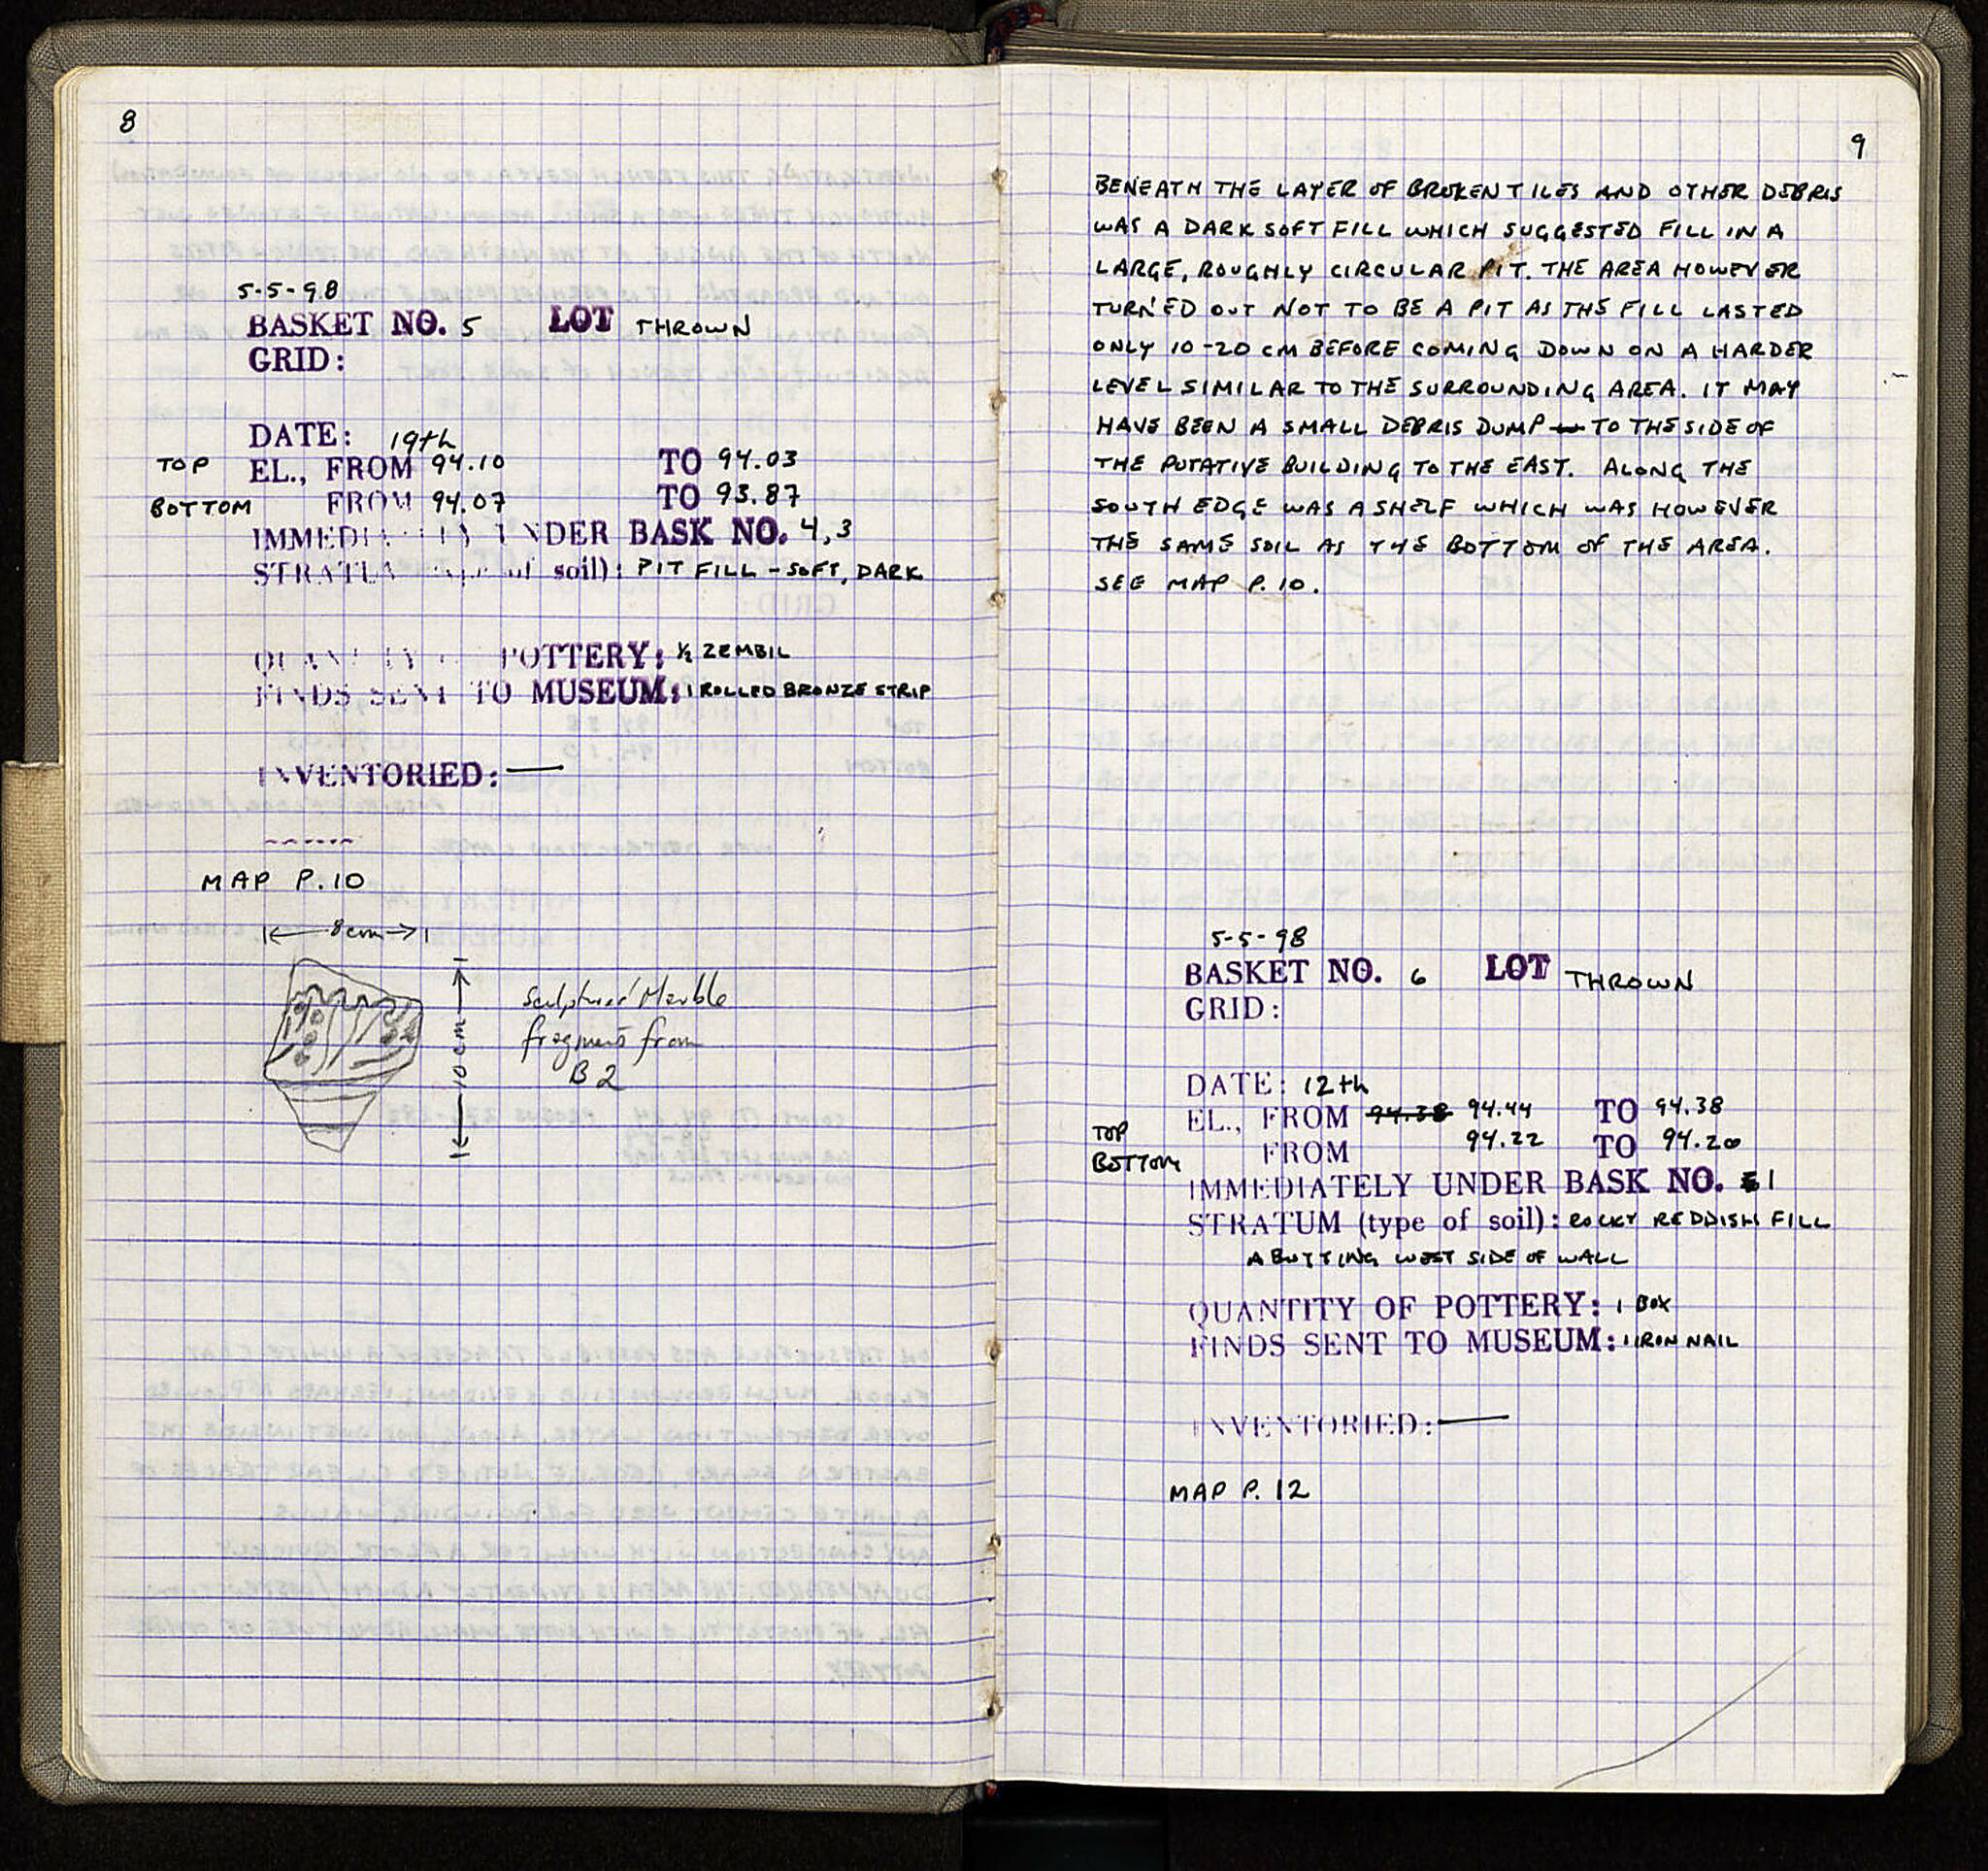 8
5-5-98
BASKET NO. 5 LOT THROWN
GRID:
DATE: 19th
TOP EL., FROM 94.10 TO 94.03
BOTTOM FROM 94.07 TO 93.87
IMMEDI UNDER BASK NO. 4,3
STRATU of soil): PIT FILL - SOFT, DARK
QUANTITY POTTERY: ½ ZEMBIL
FINDS SENT TO MUSEUM: 1 ROLLED BRONZE STRIP
INVENTORIED: —
MAP P.10
8cm
10cm
Sculptured Marble
fragment from
B2
9
BENEATH THE LAYER OF BROKEN TILES AND OTHER DEBRIS
WAS A DARK SOFT FILL WHICH SUGGESTED FILL IN A
LARGE, ROUGHLY CIRCULAR PIT. THE AREA HOWEVER
TURNED OUT NOT TO BE A PIT AS THE FILL LASTED
ONLY 10-20 CM BEFORE COMING DOWN ON A HARDER
LEVEL SIMILAR TO THE SURROUNDING AREA. IT MAY
HAVE BEEN A SMALL DEBRIS DUMP TO THE SIDE OF
THE PUTATIVE BUILDING TO THE EAST. ALONG THE
SOUTH EDGE WAS A SHELF WHICH WAS HOWEVER
THE SAME SOIL AS THE BOTTOM OF THE AREA.
SEE MAP P.10.
5-5-98
BASKET NO. 6 LOT THROWN
GRID:
DATE: 12th
TOP EL., FROM 94.38 94.44 TO 94.38
BOTTOM FROM 94.22 TO 94.20
IMMEDIATELY UNDER BASK NO. 1
STRATUM (type of soil): ROCKY REDDISH FILL
ABUTTING WEST SIDE OF WALL
QUANTITY OF POTTERY: 1 BOX
FINDS SENT TO MUSEUM: 1 IRON NAIL
INVENTORIED: —
MAP P. 12